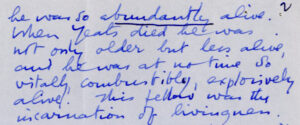 he was so abundantly alive. ?
When Yeats died he was
not only older but less alive,
and he was at no time so
vitally, combustibly, explosively
alive. This fellow was the
incarnation of livingness.